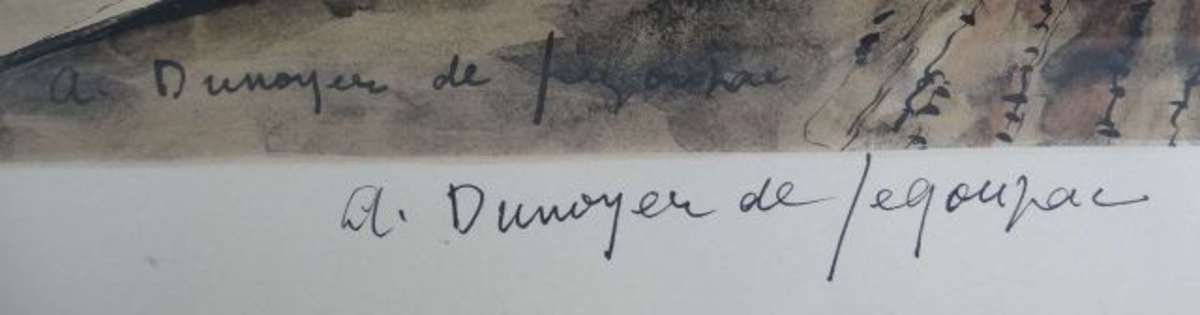 A. Dunoyer de Segonzac
A. Dunoyer de Segonzac